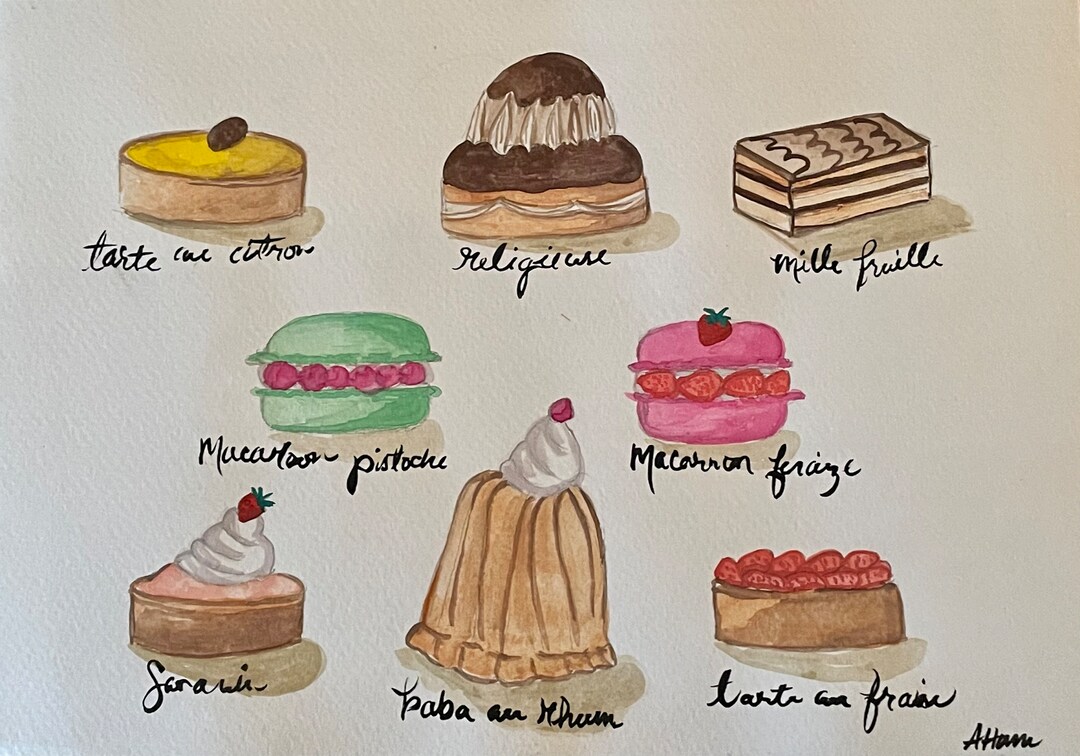 tarte au citron
religieuse
mille feuille
Macaroon pistache
Macarron fraize
Savarin
baba au rhum
tarte au fraise